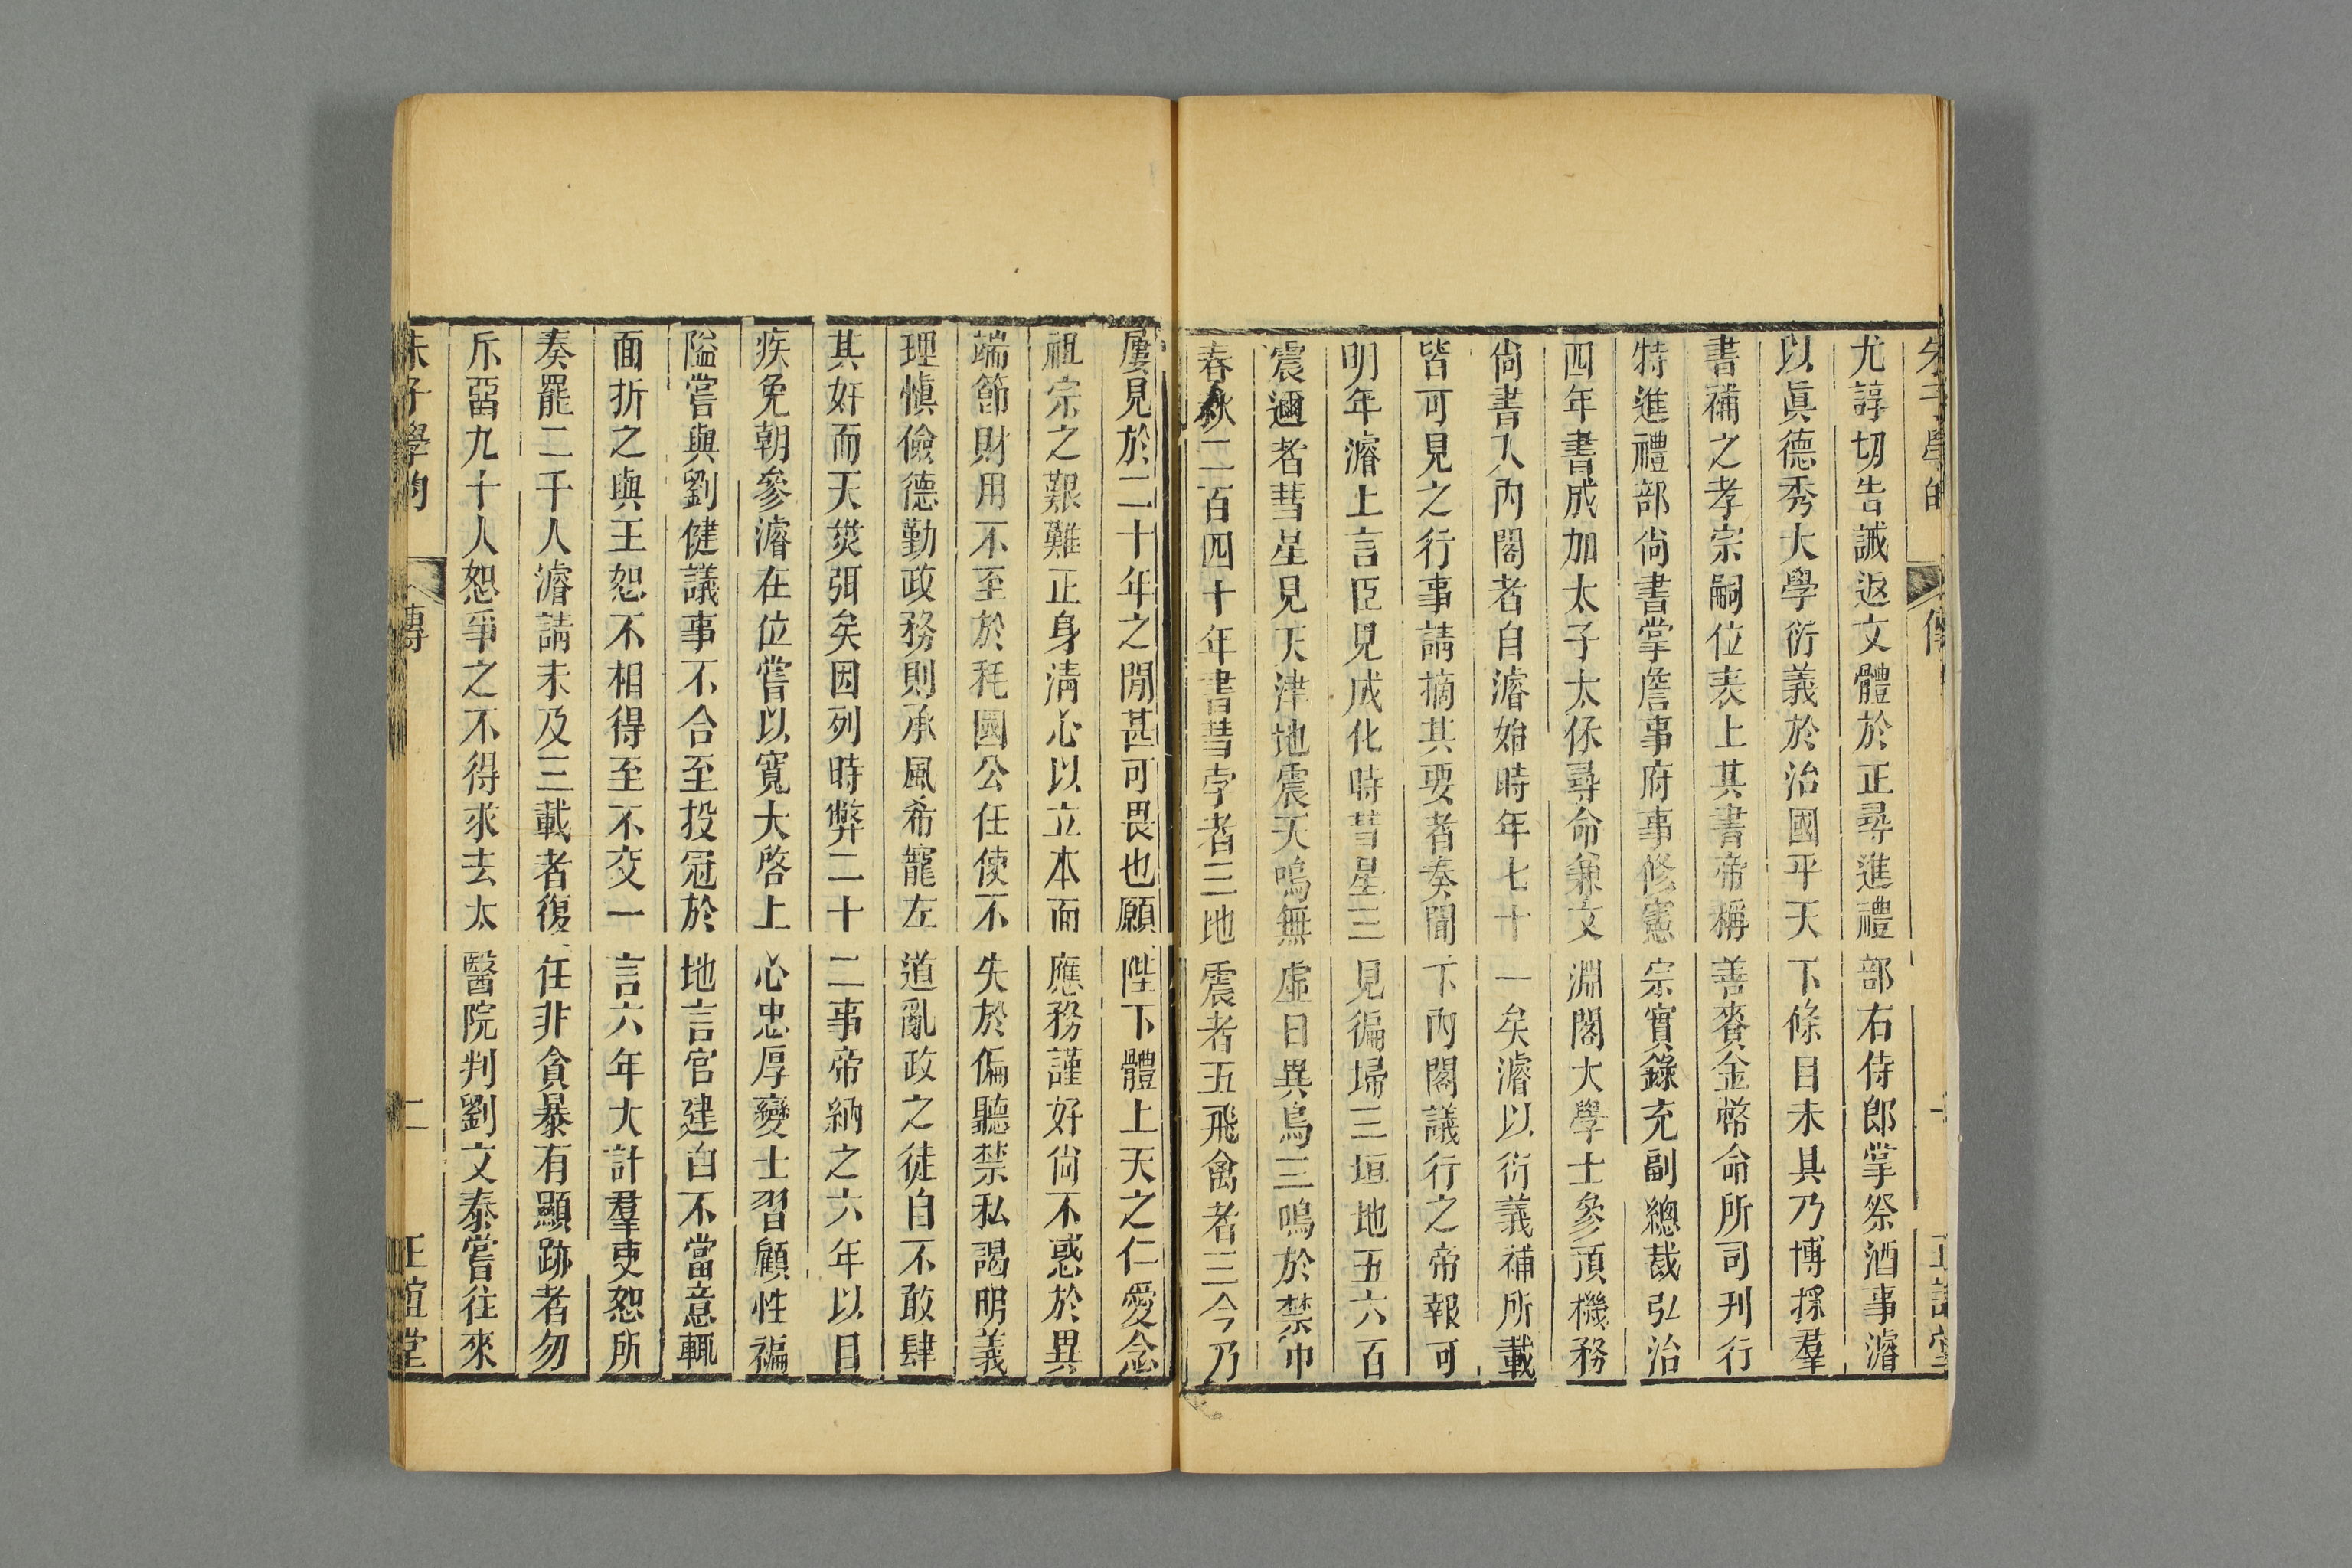 朱子學的 傳 一 正誼堂
尤諄切告誡返文體於正尋進禮部右侍郎掌祭酒事濬
以眞德秀大學衍義於治國平天下條目未具乃博採羣
書補之孝宗嗣位表上其書帝稱善賚金幣命所司刊行
特進禮部尙書掌詹事府事修憲宗實錄充副總裁弘治
四年書成加太子太保尋命兼文淵閣大學士參預機務
尙書入內閣者自濬始時年七十一矣濬以衍義補所載
皆可見之行事請摘其要者奏聞下內閣議行之帝報可
明年濬上言臣見成化時彗星三見徧埽三垣地五六百
震邇者彗星見天津地震天鳴無虛日異鳥三鳴於禁中
春秋二百四十年書彗孛者三地震者五飛禽者三今乃
屢見於二十年之閒甚可畏也願陛下體上天之仁愛念
祖宗之艱難正身淸心以立本而應務謹好尙不惑於異
端節財用不至於秏國公任使不失於偏聽禁私謁明義
理愼儉德勤政務則承風希寵左道亂政之徒自不敢肆
其奸而天災弭矣因列時弊二十二事帝納之六年以目
疾免朝參濬在位嘗以寬大啓上心忠厚變士習顧性褊
隘嘗與劉健議事不合至投冠於地言官建白不當意輒
面折之與王恕不相得至不交一言六年大計羣吏恕所
奏罷二千人濬請未及三載者復任非貪暴有顯跡者勿
斥畱九十人恕爭之不得求去太醫院判劉文泰嘗往來
朱子學的 傳 二 正誼堂